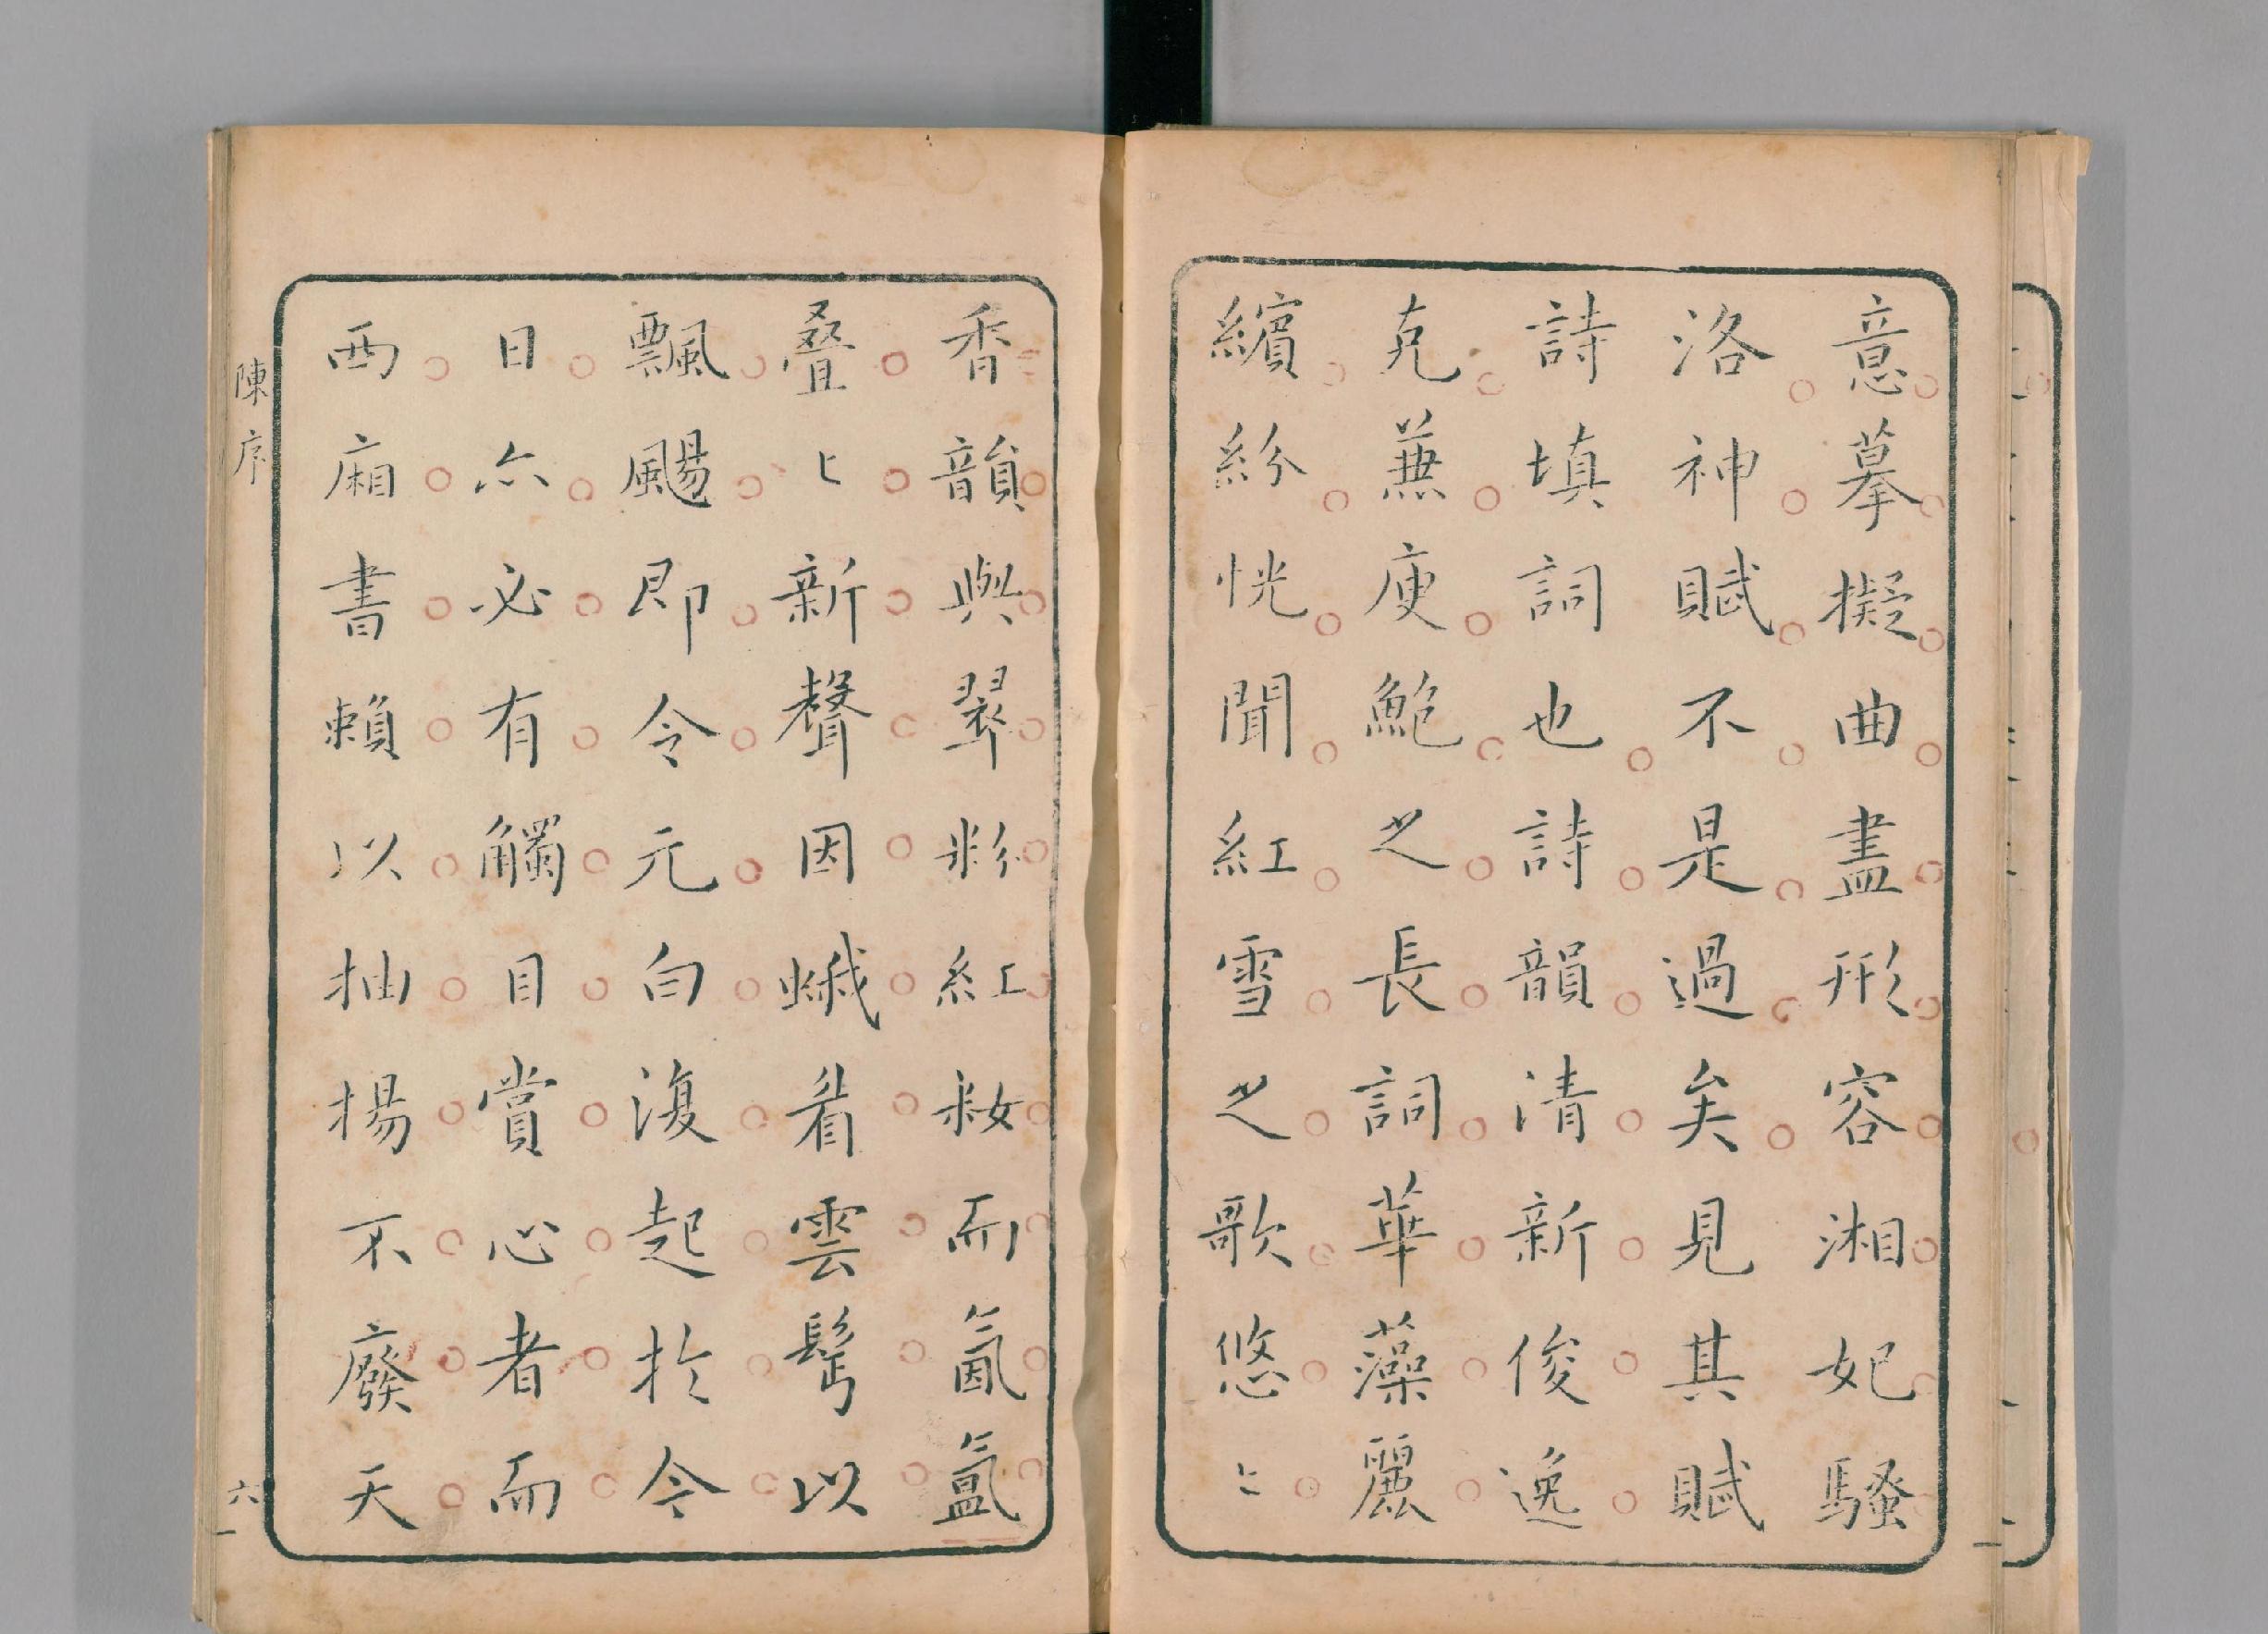 意摹擬曲盡形容湘妃騷
洛神賦不是過矣見其賦
詩填詞也詩韻清新俊逸
克蕪庾鮑之長詞華藻麗
繽紛恍聞紅雪之歌悠〻
香韻與翠彩紅妝而氤氳
叠〻新聲因蛾眉雲髩以
飄颺即令元白復起於今
日亦必有觸目賞心者而
西廂書賴以抽揚不廢天
陳序
六